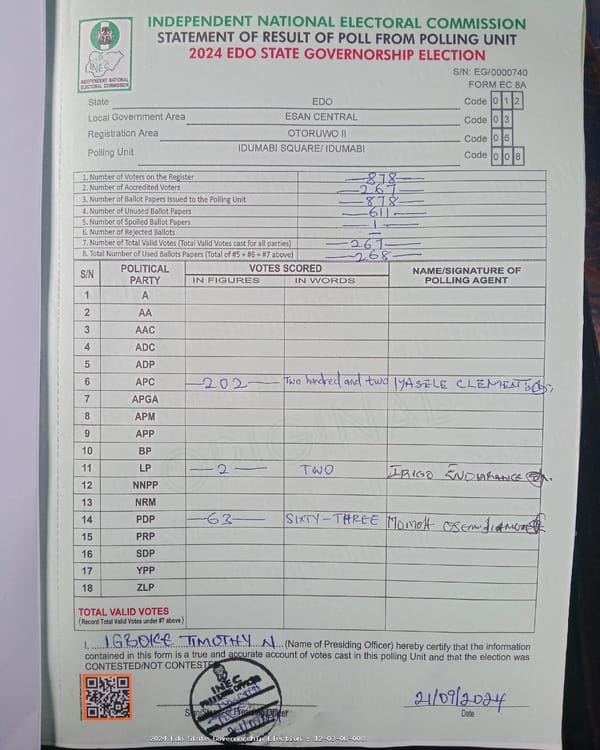 INDEPENDENT NATIONAL ELECTORAL COMMISSION
STATEMENT OF RESULT OF POLL FROM POLLING UNIT
2024 EDO STATE GOVERNORSHIP ELECTION
INEC
INDEPENDENT NATIONAL
ELECTORAL COMMISSION
S/N: EG/0000740
FORM EC 8A
State EDO Code 0 1 2
Local Government Area ESAN CENTRAL Code 0 3
Registration Area OTORUWO II Code 0 6
Polling Unit IDUMABI SQUARE/ IDUMABI Code 0 0 8
1. Number of Voters on the Register 878
2. Number of Accredited Voters 267
3. Number of Ballot Papers Issued to the Polling Unit 878
4. Number of Unused Ballot Papers 611
5. Number of Spoiled Ballot Papers 1
6. Number of Rejected Ballots —
7. Number of Total Valid Votes (Total Valid Votes cast for all parties) 267
8. Total Number of Used Ballots Papers (Total of #5 + #6 + #7 above) 268
S/N POLITICAL PARTY VOTES SCORED NAME/SIGNATURE OF POLLING AGENT
IN FIGURES IN WORDS
1 A
2 AA
3 AAC
4 ADC
5 ADP
6 APC 202 Two hundred and two IYASELE CLEMENT
7 APGA
8 APM
9 APP
10 BP
11 LP 2 TWO IRIGO ENDURANCE
12 NNPP
13 NRM
14 PDP 63 SIXTY-THREE MOMOH
15 PRP
16 SDP
17 YPP
18 ZLP
ORIGINAL
TOTAL VALID VOTES
(Record Total Valid Votes under #7 above)
I, IGBOKE TIMOTHY N (Name of Presiding Officer) hereby certify that the information
contained in this form is a true and accurate account of votes cast in this polling Unit and that the election was
CONTESTED/NOT CONTESTED
INEC
21/09/2024
Date
2024 Edo State Governorship Election : 12-03-06-008